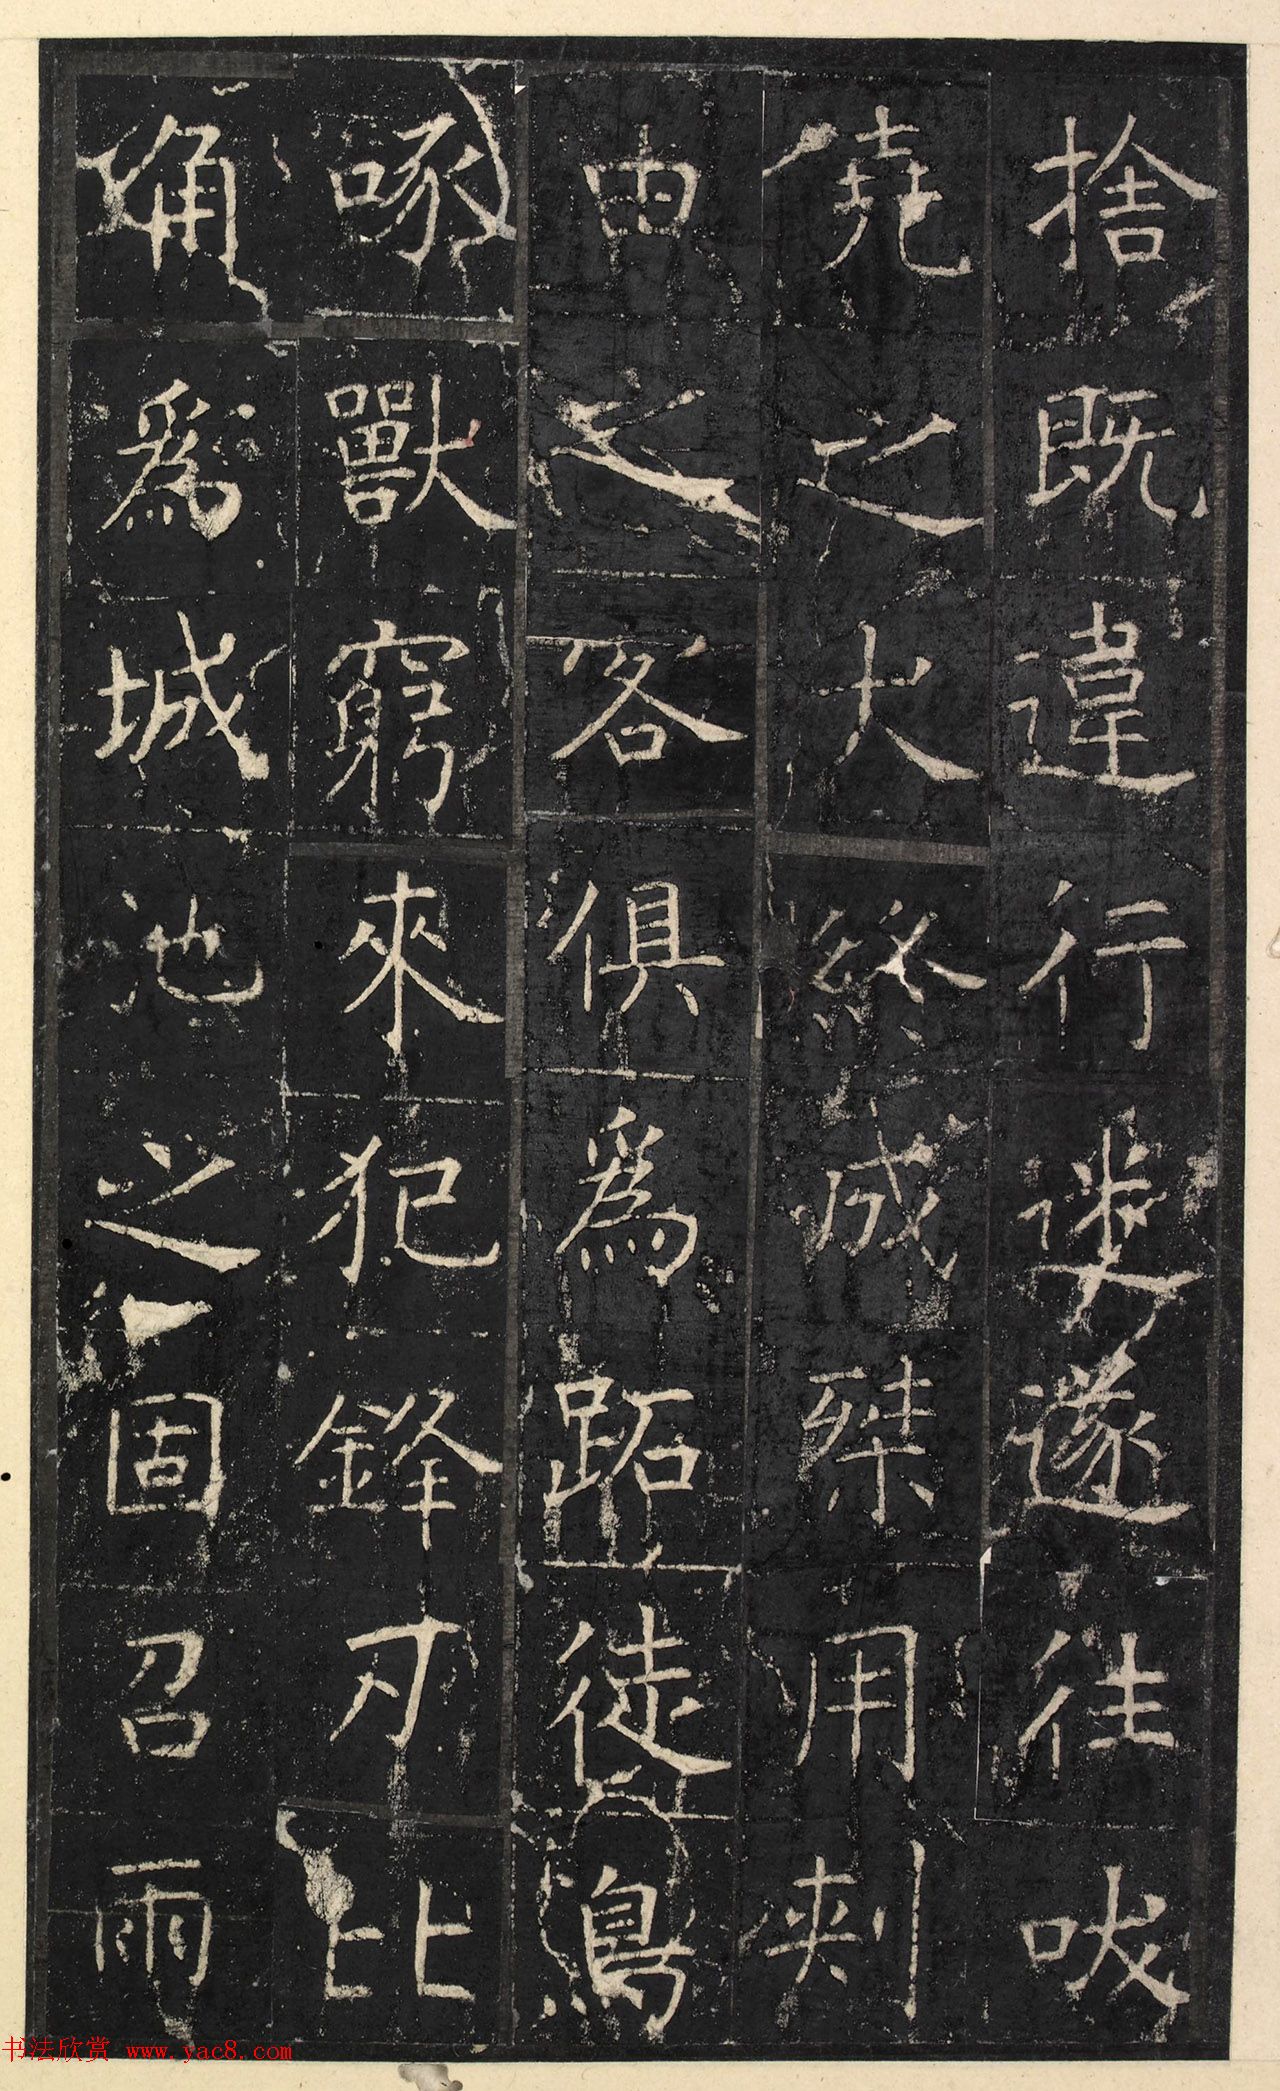 捨既違行迷遂往吠
堯之犬終成桀用刺
由之客俱為跖徒鳥
啄獸窮來犯鋒刃比
确為城池之固召雨
书法欣赏 www.yac8.com